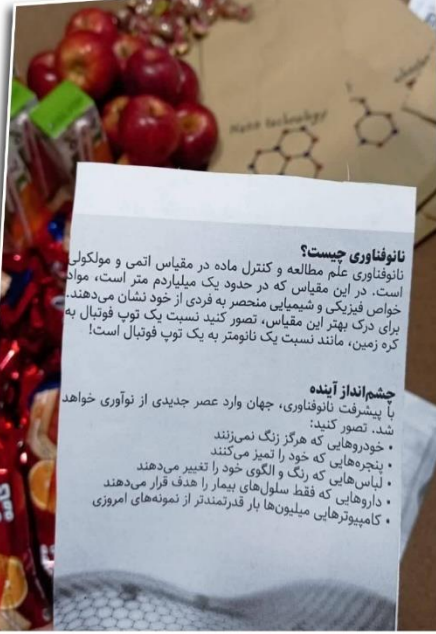 Nano technology
نانوفناوری چیست؟
نانوفناوری علم مطالعه و کنترل ماده در مقیاس اتمی و مولکولی
است. در این مقیاس که در حدود یک میلیاردم متر است، مواد
خواص فیزیکی و شیمیایی منحصر به فردی از خود نشان می‌دهند.
برای درک بهتر این مقیاس، تصور کنید نسبت یک توپ فوتبال به
کره زمین، مانند نسبت یک نانومتر به یک توپ فوتبال است!
چشم‌انداز آینده
با پیشرفت نانوفناوری، جهان وارد عصر جدیدی از نوآوری خواهد
شد. تصور کنید:
• خودروهایی که هرگز زنگ نمی‌زنند
• پنجره‌هایی که خود را تمیز می‌کنند
• لباس‌هایی که رنگ و الگوی خود را تغییر می‌دهند
• داروهایی که فقط سلول‌های بیمار را هدف قرار می‌دهند
• کامپیوترهایی میلیون‌ها بار قدرتمندتر از نمونه‌های امروزی